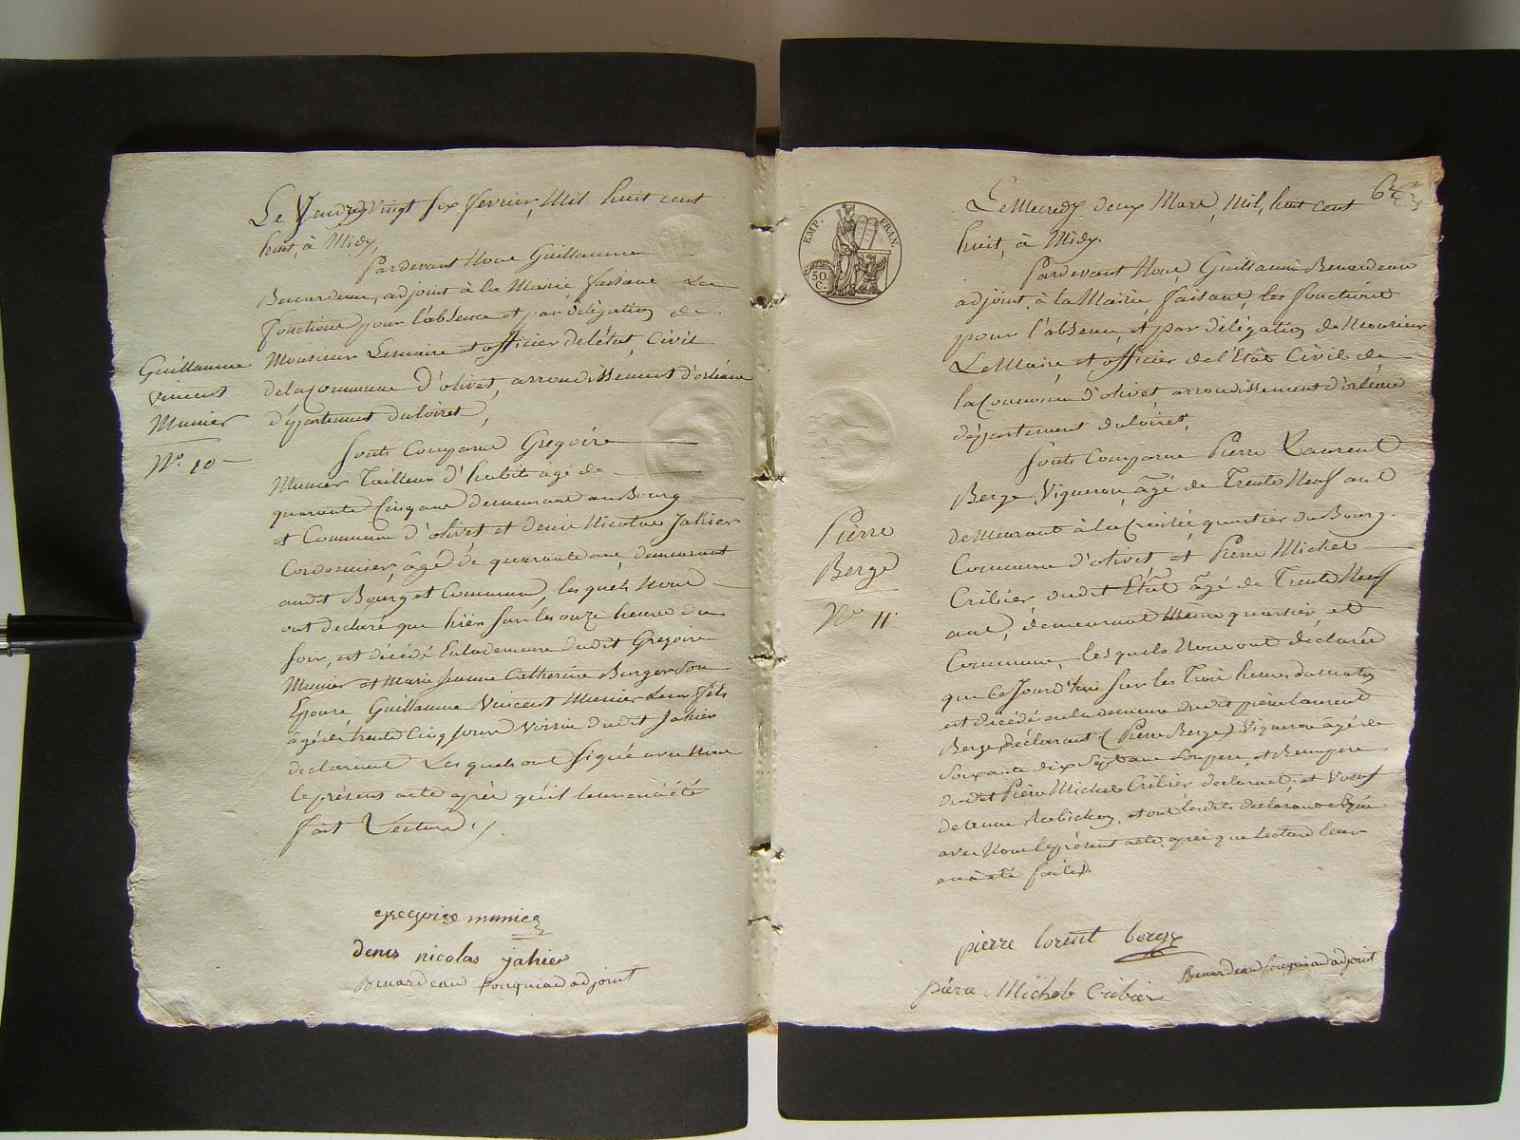 Le Vendredy vingt six fevrier, Mil huit cent
huit, à Midy,
Pardevant Nous Guillaume
Benardeau, adjoint à la Mairie faisant Les
fonctions pour l'absence et par délégation de
Monsieur Lemaire et officier de l'état Civil
de la Commune d'olivet, arrondissement d'orléans
département du loiret,
Guillaume
Vincent
Munier
N.º 10
Sont Comparus Gregoire
Munier Tailleur d'habits âgé de
quarante Cinq ans demeurant au Bourg
et Commune d'olivet et Denis Nicolas Jahier
Cordonnier, âgé de quarante ans, demeurant
audit Bourg et Commune, lesquels Nous
ont declaré que hier sur les onze heures du
soir, est décédé En la demeure dudit Gregoire
Munier et Marie Jeanne Catherine Berger Son
Epouse, Guillaume Vincent Munier Leur fils
âgé de trente Cinq jours Voisin dudit Jahier
declarant Lesquels ont Signé avec Nous
le présent acte après qu'il leur en a été
fait Lecture ./.
gregoire munier
denis nicolas jahier
Benardeau adjoint
EMP. FRAN.
50 C.
Le Mecredy deux Mars, Mil, huit cent
huit, à Midy.
Pardevant Nous Guillaume Benardeau
adjoint à la Mairie faisant les fonctions
pour l'absence et par délégation de Monsieur
Le Maire et officier de l'Etât Civil de
la Commune d'olivet, arrondissement d'orléans
département du loiret,
Pierre
Berge
N.º 11
Sont Comparus Pierre Laurent
Berge, Vigneron, âgé de Trente Neuf ans
demeurant à la quartier du Bourg
Commune d'olivet, et Pierre Michel
Cribier, dudit Etât âgé de Trente Neuf
ans, demeurant Même quartier, et
Commune, lesquels Nous ont déclaré
que Ce Jourd'hui sur les Trois heures du matin
est décédé en la demeure dudit pierre laurent
Berge, déclarant (Pierre Berge) Vigneron âgé de
Soixante dix Sept ans Son pere, et Beaupere
dudit Pierre Michel Cribier declarant, et Veuf
de et ont lesdits declarants Signé
avec Nous le présent acte, après que lecture leur
en a été faite.
pierre lorent berge
piere Michel Cribier
Benardeau adjoint